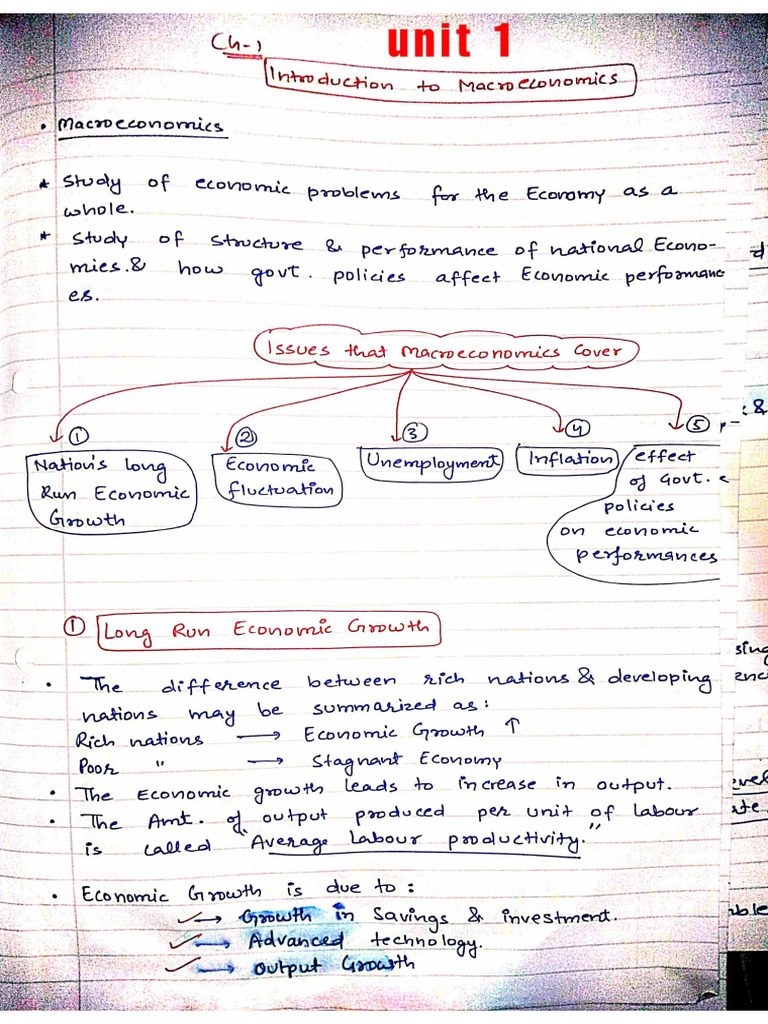 Ch-1 unit 1
Introduction to Macroeconomics
• Macroeconomics
* Study of economic problems for the Economy as a
whole.
* Study of structure & performance of national Econo-
mies.& how govt. policies affect Economic performanc
es.
Issues that Macroeconomics Cover
① ② ③ ④ ⑤
Nation's Long
Run Economic
Growth
Economic
fluctuation
Unemployment
Inflation
effect
of Govt.
policies
on economic
performances
① Long Run Economic Growth
• The difference between rich nations & developing
nations may be summarized as:
Rich nations → Economic Growth ↑
Poor " → Stagnant Economy
• The Economic growth leads to increase in output.
• The Amt. of output produced per unit of labour
is called "Average Labour productivity."
• Economic Growth is due to:
✓→ Growth in Savings & investment.
✓→ Advanced technology.
✓→ Output Growth